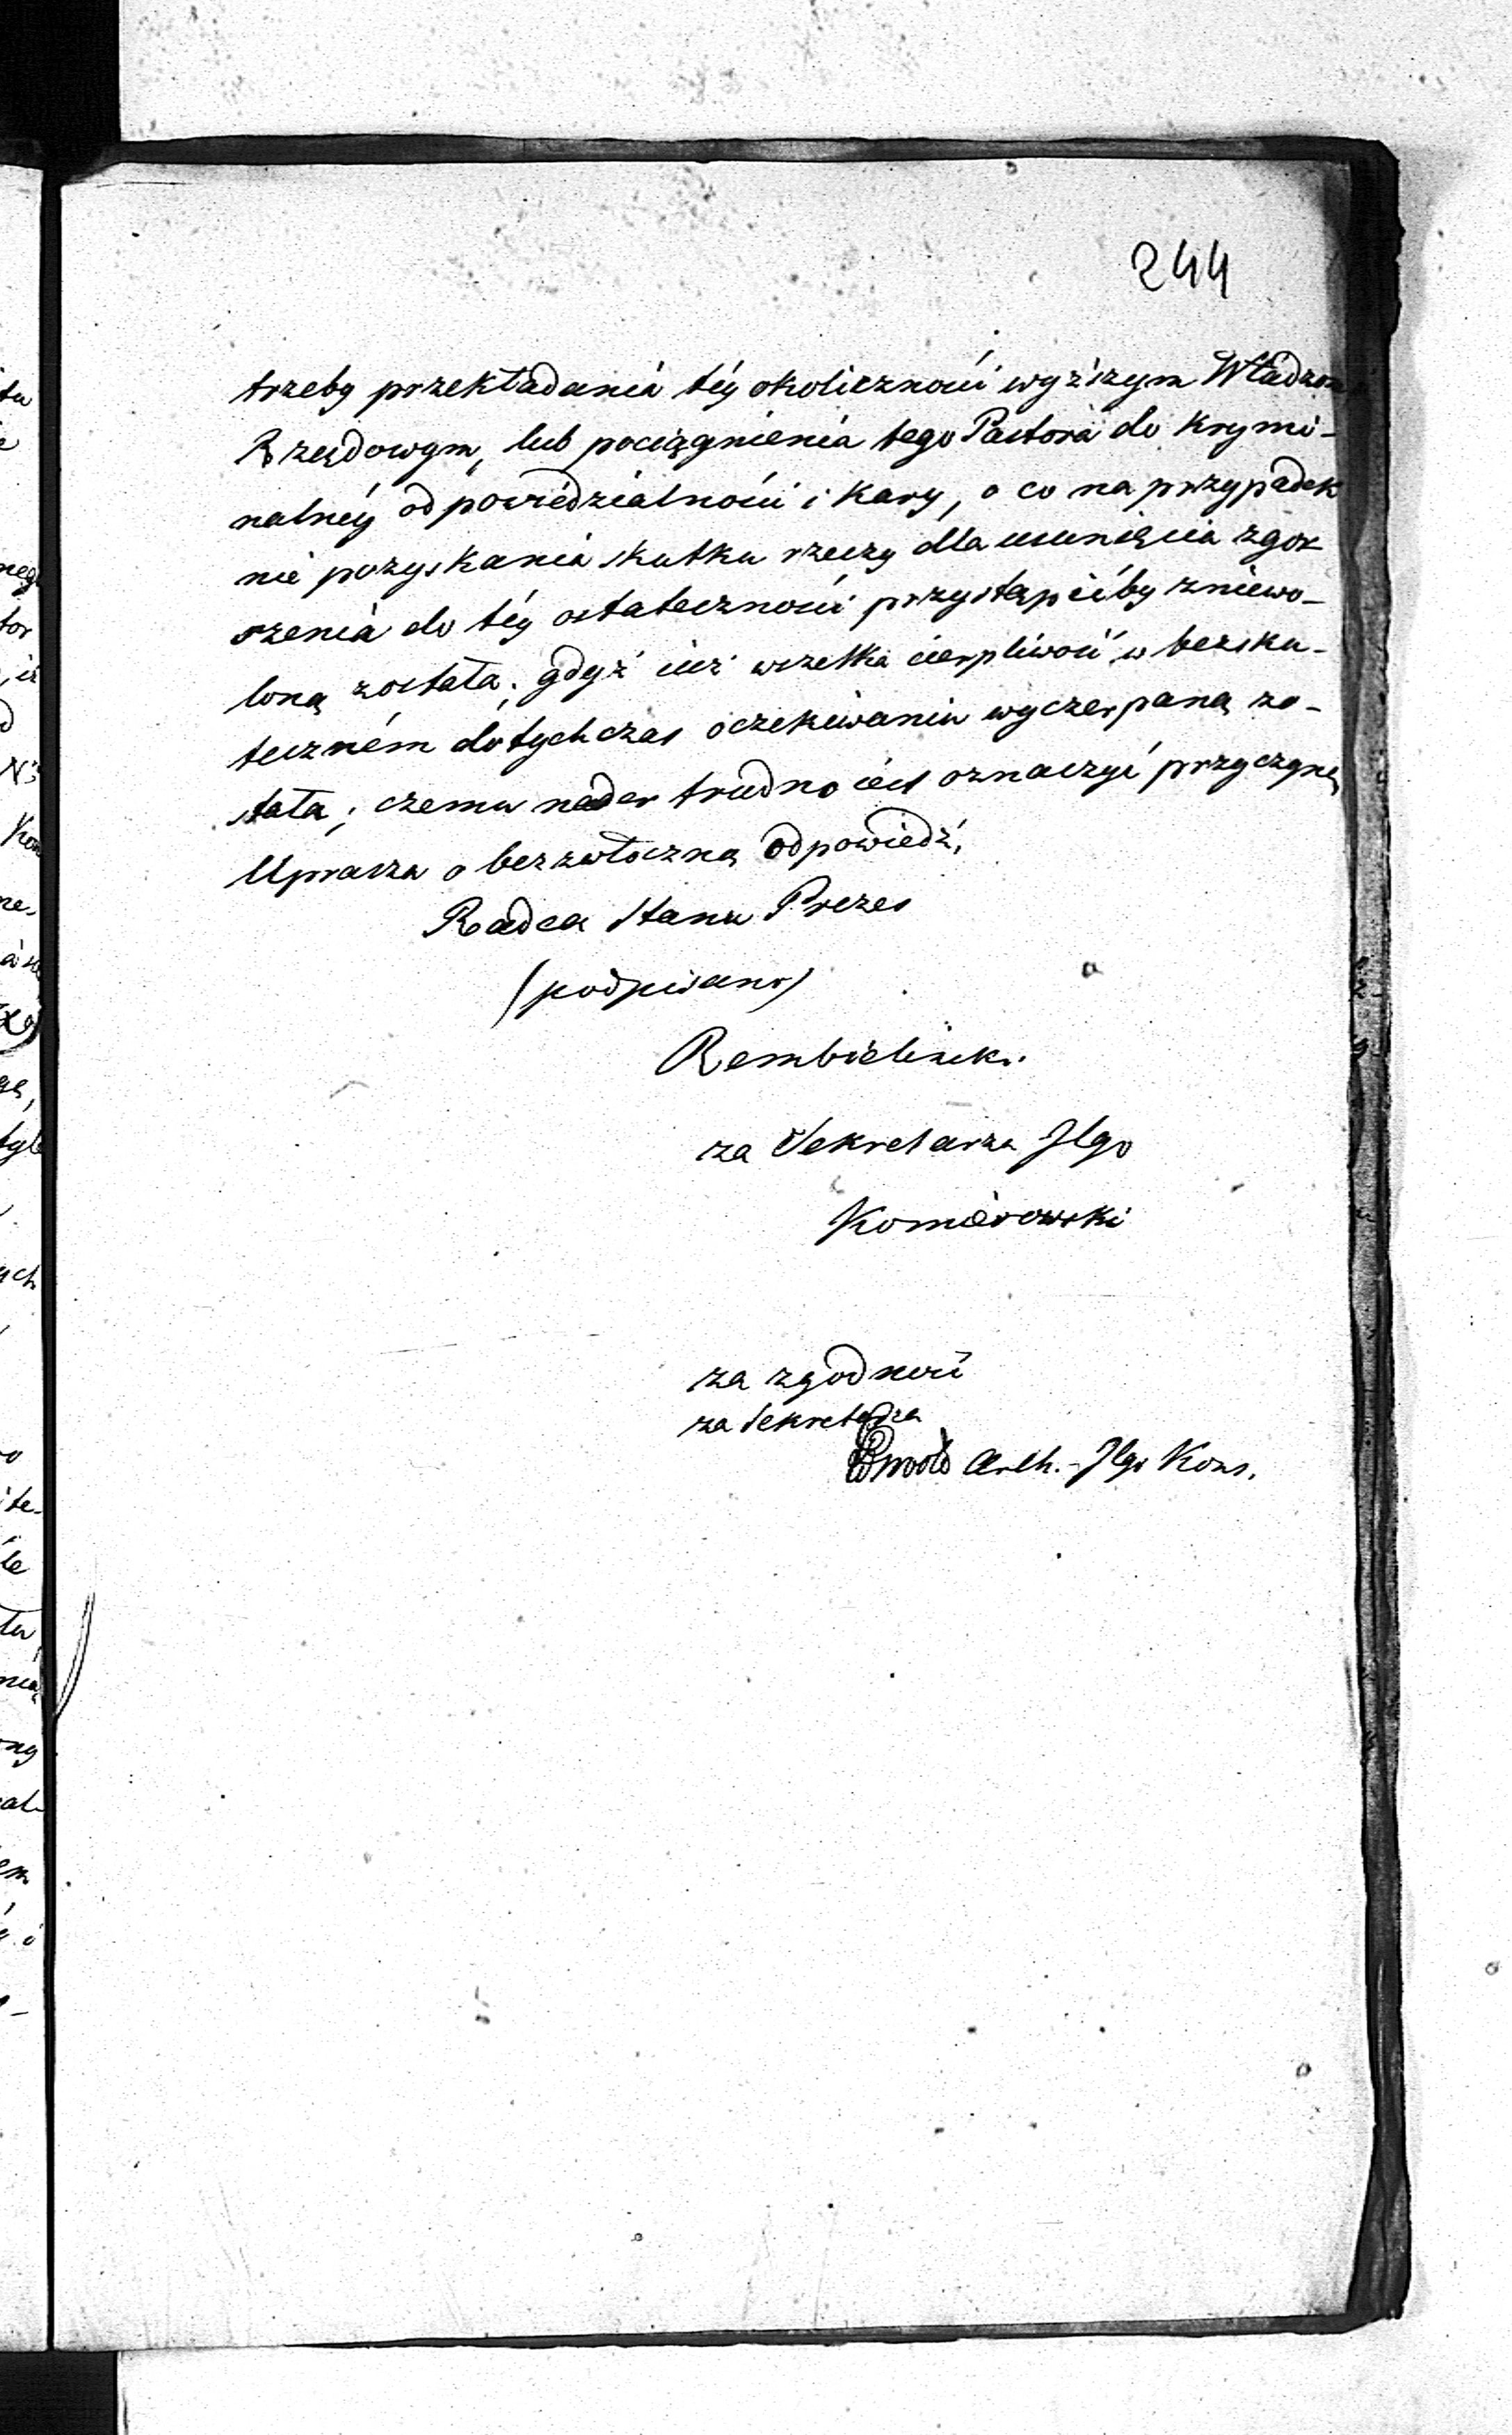 244
trzeby przekładania téy okoliczności wyższym Władzom
Rządowym, lub pociągnienia tego Pastora do krymi-
nalnéy odpowiedzialności i kary, o co na przypadek
nie pozyskania skutku rzeczy dla usunięcia zgor
szenia do téy ostateczności przystąpićby zniewo-
loną została; gdyż iuż wszelka cierpliwość w bezsku-
teczném dotychczas oczekiwaniu wyczerpaną zo-
stała; czemu nader trudno iest oznaczyć przyczynę
Uprasza o bezzwłoczną odpowiedź,
Radca Stanu Prezes
(podpisano)
Rembieliński.
za Sekretarza Jlgo
Komierowski
za zgodność
za Sekretarza
Arch. Jlgo Kons.